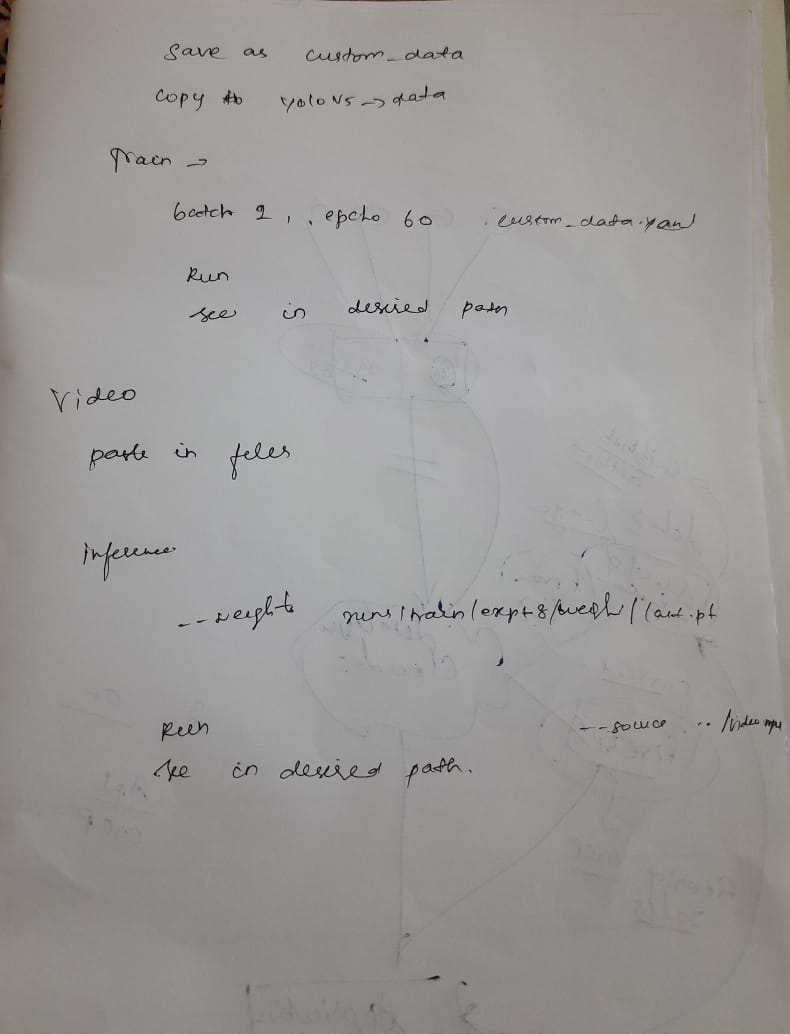 Save as custom_data
copy to yolov5 → data
Train →
batch 2, , epcho 60 . custom_data.yaml
Run
see in desired path
Video
paste in files
inference
--weights runs/train/expt8/weigh/last.pt
Run --source ../video.mp4
See in desired path.